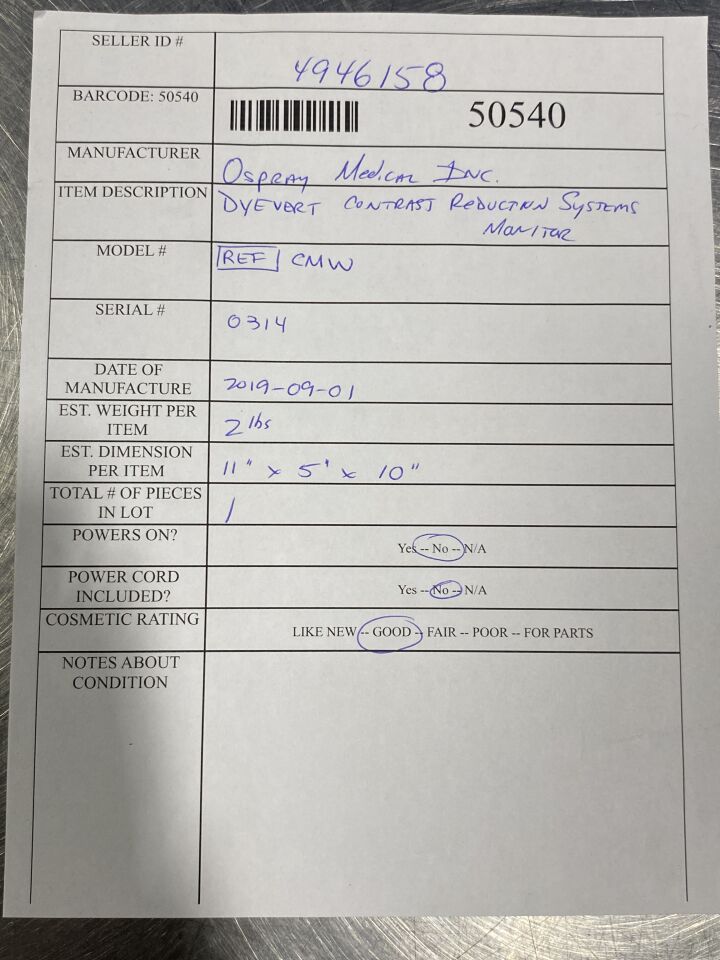 SELLER ID #
4946158
BARCODE: 50540
50540
MANUFACTURER
Ospray Medical Inc.
ITEM DESCRIPTION
DYEVERT CONTRAST REDUCTION SYSTEMS
MONITOR
MODEL #
REF CMW
SERIAL #
0314
DATE OF
MANUFACTURE
2019-09-01
EST. WEIGHT PER
ITEM
2 lbs
EST. DIMENSION
PER ITEM
11" x 5' x 10"
TOTAL # OF PIECES
IN LOT
1
POWERS ON?
Yes -- No -- N/A
POWER CORD
INCLUDED?
Yes -- No -- N/A
COSMETIC RATING
LIKE NEW -- GOOD -- FAIR -- POOR -- FOR PARTS
NOTES ABOUT
CONDITION